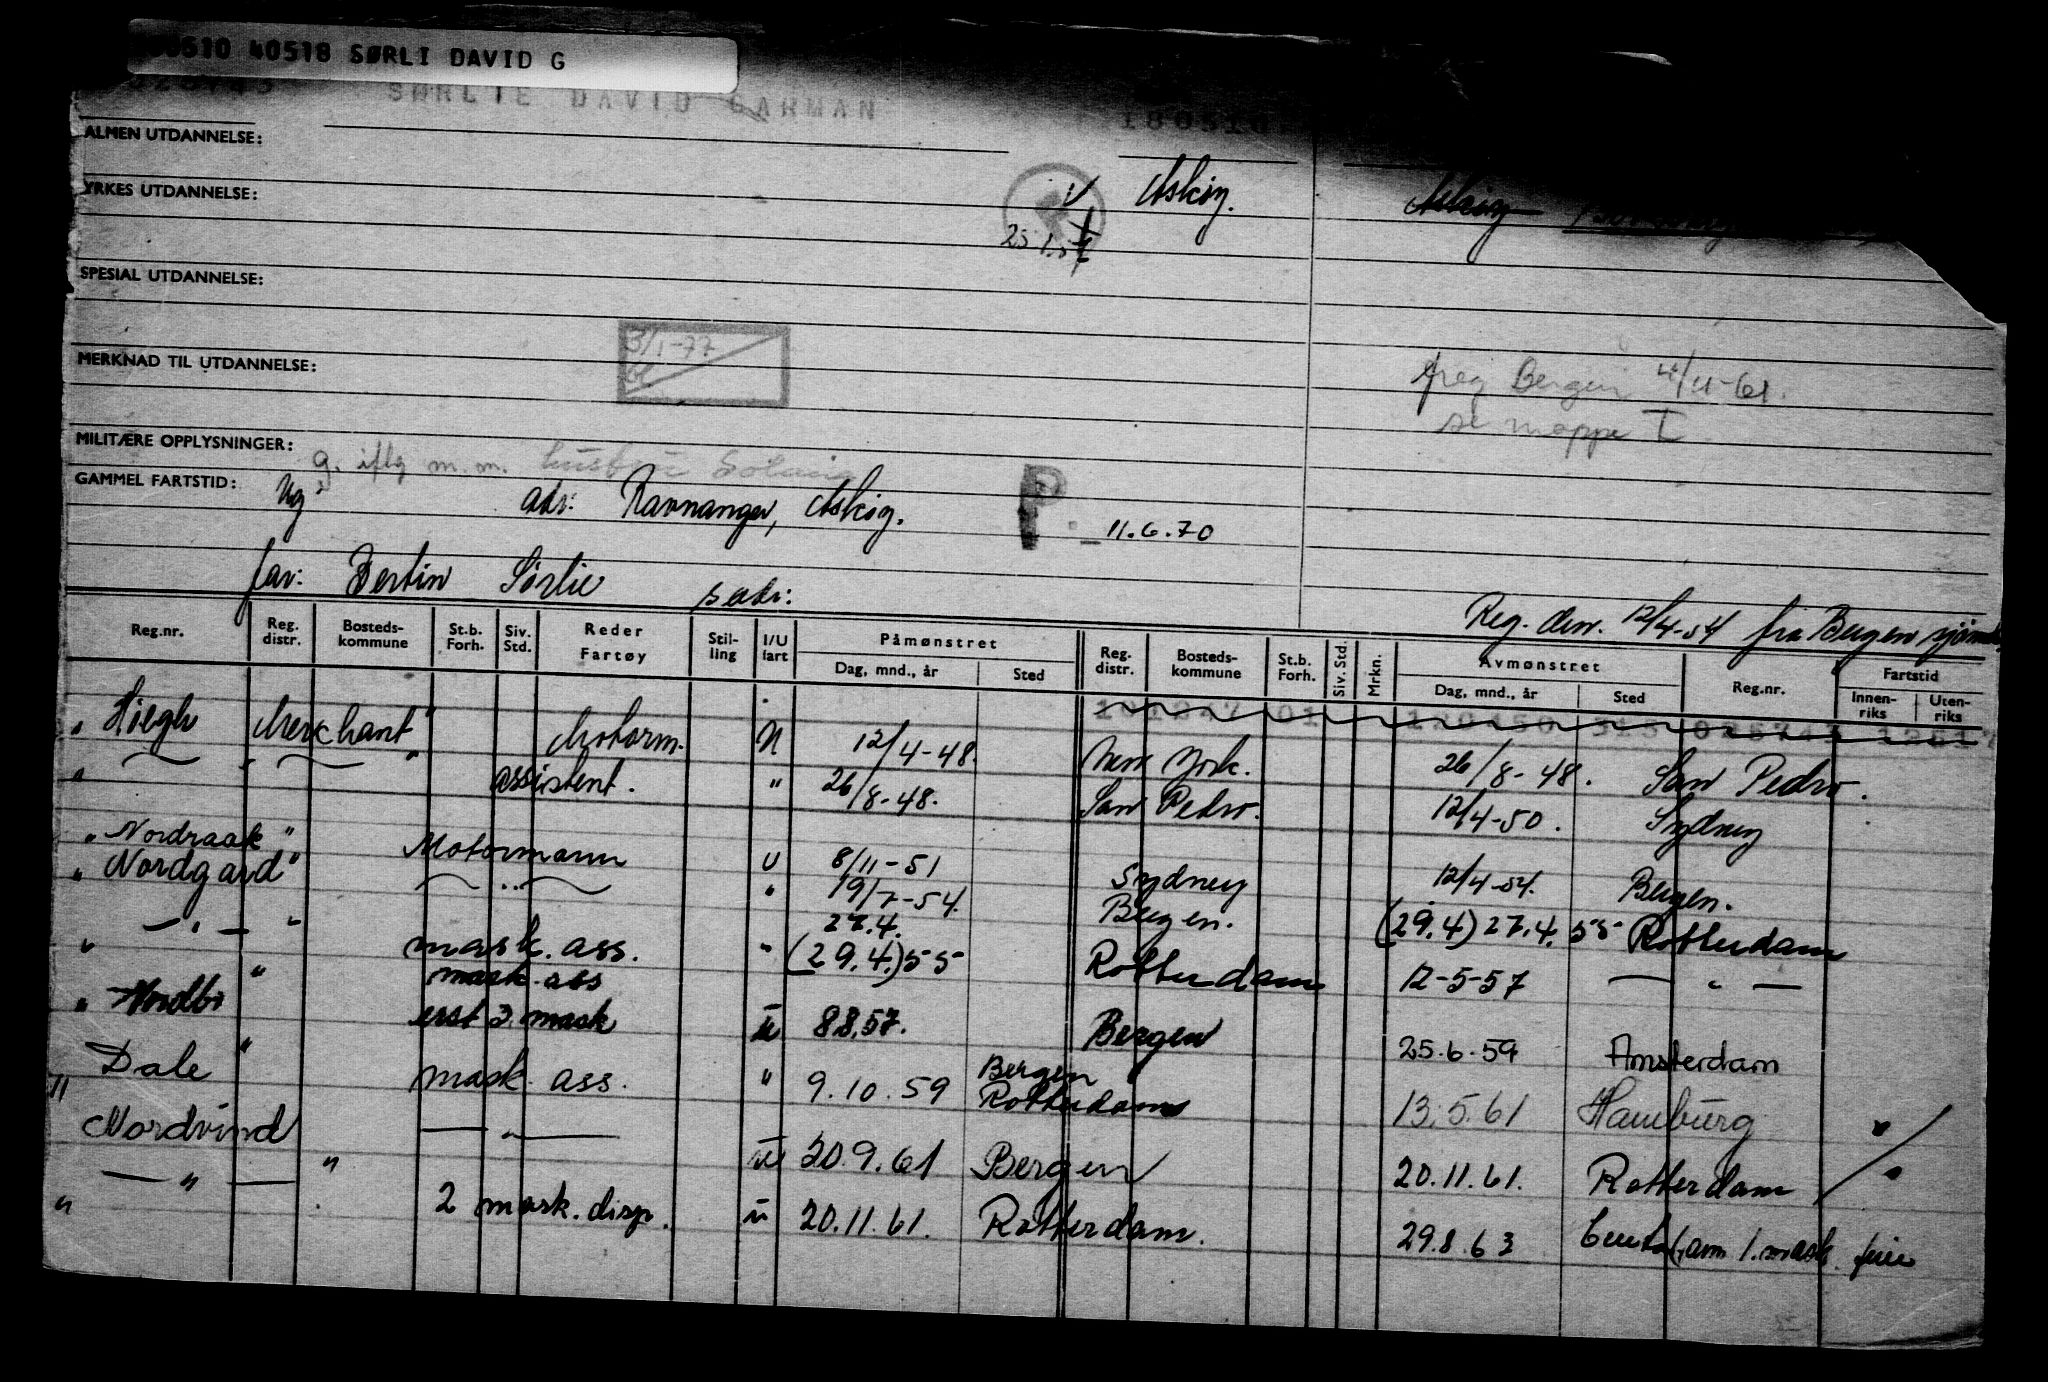 40518 SØRLI DAVID G
SØRLIE DAVID GARMAN
180510
ALMEN UTDANNELSE:
YRKES UTDANNELSE: Askøy. Askøy
25.1.57
SPESIAL UTDANNELSE:
3/1-77
MERKNAD TIL UTDANNELSE:
Bergen 4/11-61.
se mappe I
MILITÆRE OPPLYSNINGER:
g. iflg m.m. hustru Solveig
GAMMEL FARTSTID: Ug adr: Ravnanger, Askøy. P. 11.6.70
far: Bertin Sørlie s adr:
Reg. den. 12/4-54 fra Bergen
Reg.nr. Reg. distr. Bosteds-kommune St.b. Forh. Siv. Std. Reder Fartøy Stil-ling I/U fart Påmønstret Dag, mnd., år Sted Reg. distr. Bosteds-kommune St.b. Forh. Siv. Std. Mrkn. Avmønstret Dag, mnd., år Sted Reg.nr. Fartstid Innen-riks Uten-riks
" Høegh Merchant" Motorm. U 12/4-48. New York. 26/8-48. San Pedro.
" — " — " assistent. " 26/8-48. San Pedro. 12/4-50. Sydney
" Nordraak" Motormann U 8/11-51 Sydney 12/4-54. Bergen.
" Nordgard" — " — " 19/7-54. Bergen. (29.4) 27.4.55 Rotterdam
— " — " mask. ass. " 27.4. (29.4.) 55 Rotterdam 12-5-57 — " —
mask ass
" Nordbo " erst 2. mask u 8.8.57. Bergen 25.6.59 Amsterdam
Dale " mask. ass. " 9.10.59 Bergen Rotterdam 13.5.61 Hamburg "
" Nordvind — " — u 20.9.61 Bergen 20.11.61. Rotterdam "
" — " — " 2 mask. disp. u 20.11.61. Rotterdam. 29.8.63 Ceuta (avm 1. mask. ferie